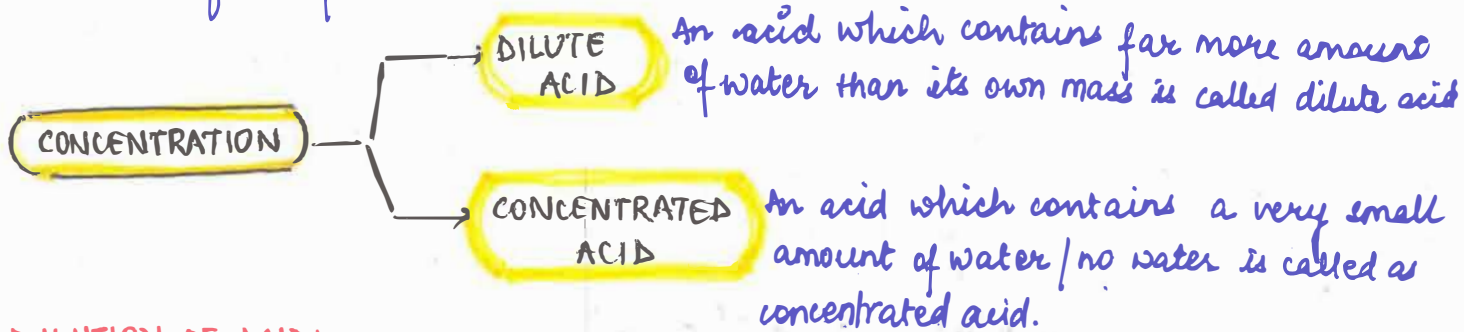 DILUTE
ACID
An acid which contains far more amount
of water than its own mass is called dilute acid
CONCENTRATION
CONCENTRATED
ACID
An acid which contains a very small
amount of water / no water is called as
concentrated acid.